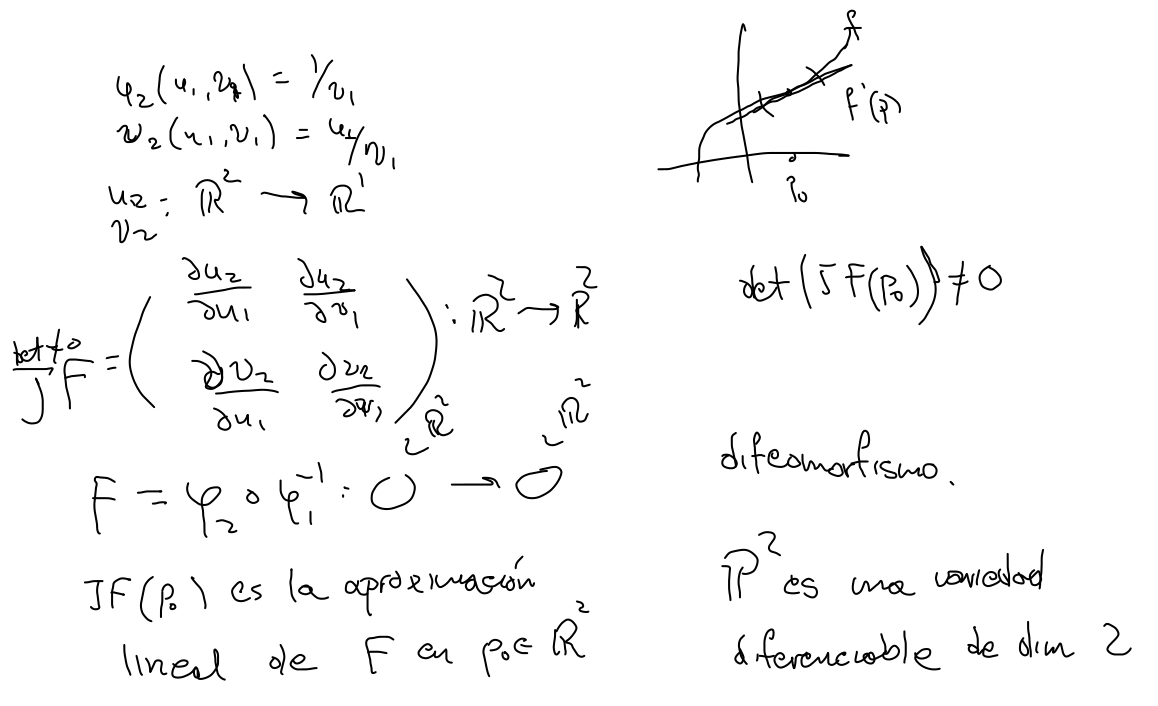 φ₂(u₁,v₁) = 1/v₁
v₂(u₁,v₁) = u₁/v₁
u₂
v₂ : ℝ² → ℝ¹
det≠0
JF = ( ∂u₂/∂u₁ ∂u₂/∂v₁
∂v₂/∂u₁ ∂v₂/∂v₁ ) : ℝ² → ℝ²
ℝ² ℝ²
F = φ₂ ∘ φ₁⁻¹ : O → O
JF(p₀) es la aproximación
lineal de F en p₀∈ ℝ²
f
f'(p)
p₀
det(JF(p₀)) ≠ 0
difeomorfismo.
ℙ² es una variedad
diferenciable de dim 2